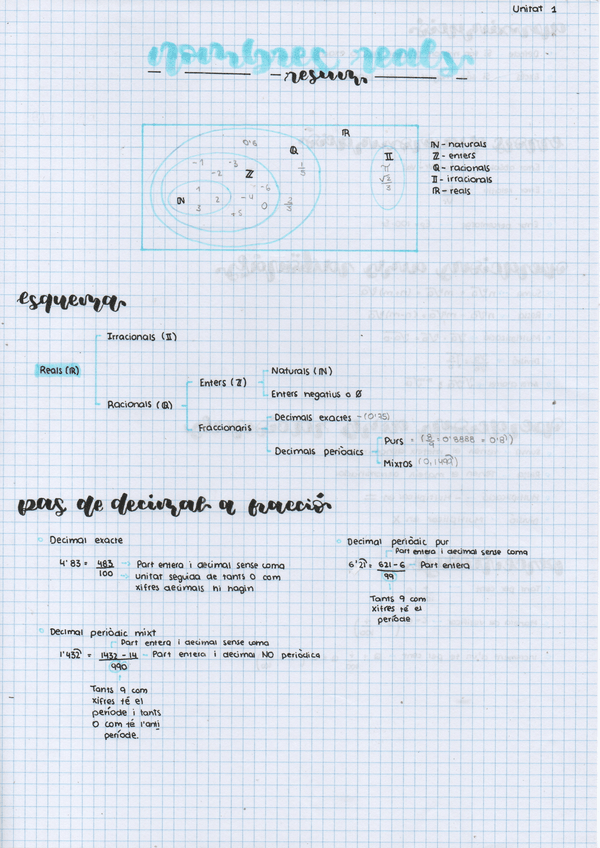 Unitat 1
nombres reals
resum
ℝ
ℕ - naturals
ℤ - enters
ℚ - racionals
𝕀 - irracionals
ℝ - reals
0'6
ℚ
𝕀
-1 -3
-2
ℤ
1/5
π
√2/3
ℕ
1
2
3
-4
-6
0
+5
2/3
esquema
Irracionals (𝕀)
Reals (ℝ)
Enters (ℤ)
Naturals (ℕ)
Enters negatius o Ø
Racionals (ℚ)
Fraccionaris
Decimals exactes - (0'75)
Decimals periòdics
Purs - (8/9 = 0'8888 = 0'8̂)
Mixtos (0,149̂)
pas de decimal a fracció
Decimal exacte
4'83 = 483/100
Part entera i decimal sense coma
unitat seguida de tants 0 com
xifres decimals hi hagin
Decimal periòdic pur
Part entera i decimal sense coma
6'21̂ = 621-6/99 - Part entera
Tants 9 com
xifres té el
període
Decimal periòdic mixt
Part entera i decimal sense coma
1'432̂ = 1432-14/990 - Part entera i decimal NO periòdica
Tants 9 com
xifres té el
període i tants
0 com té l'anti
període.